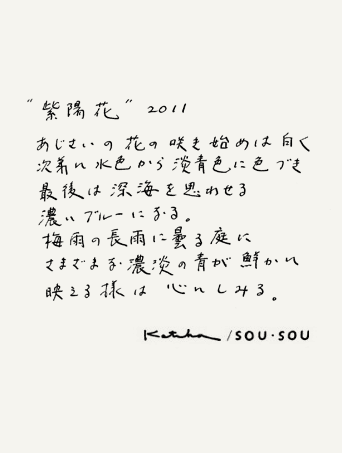 "紫陽花" 2011
あじさいの花の咲き始めは白く
次第に水色から淡青色に色づき
最後は深海を思わせる
濃いブルーになる。
梅雨の長雨に曇る庭に
さまざまな濃淡の青が鮮かに
映える様は心にしみる。
/SOU・SOU